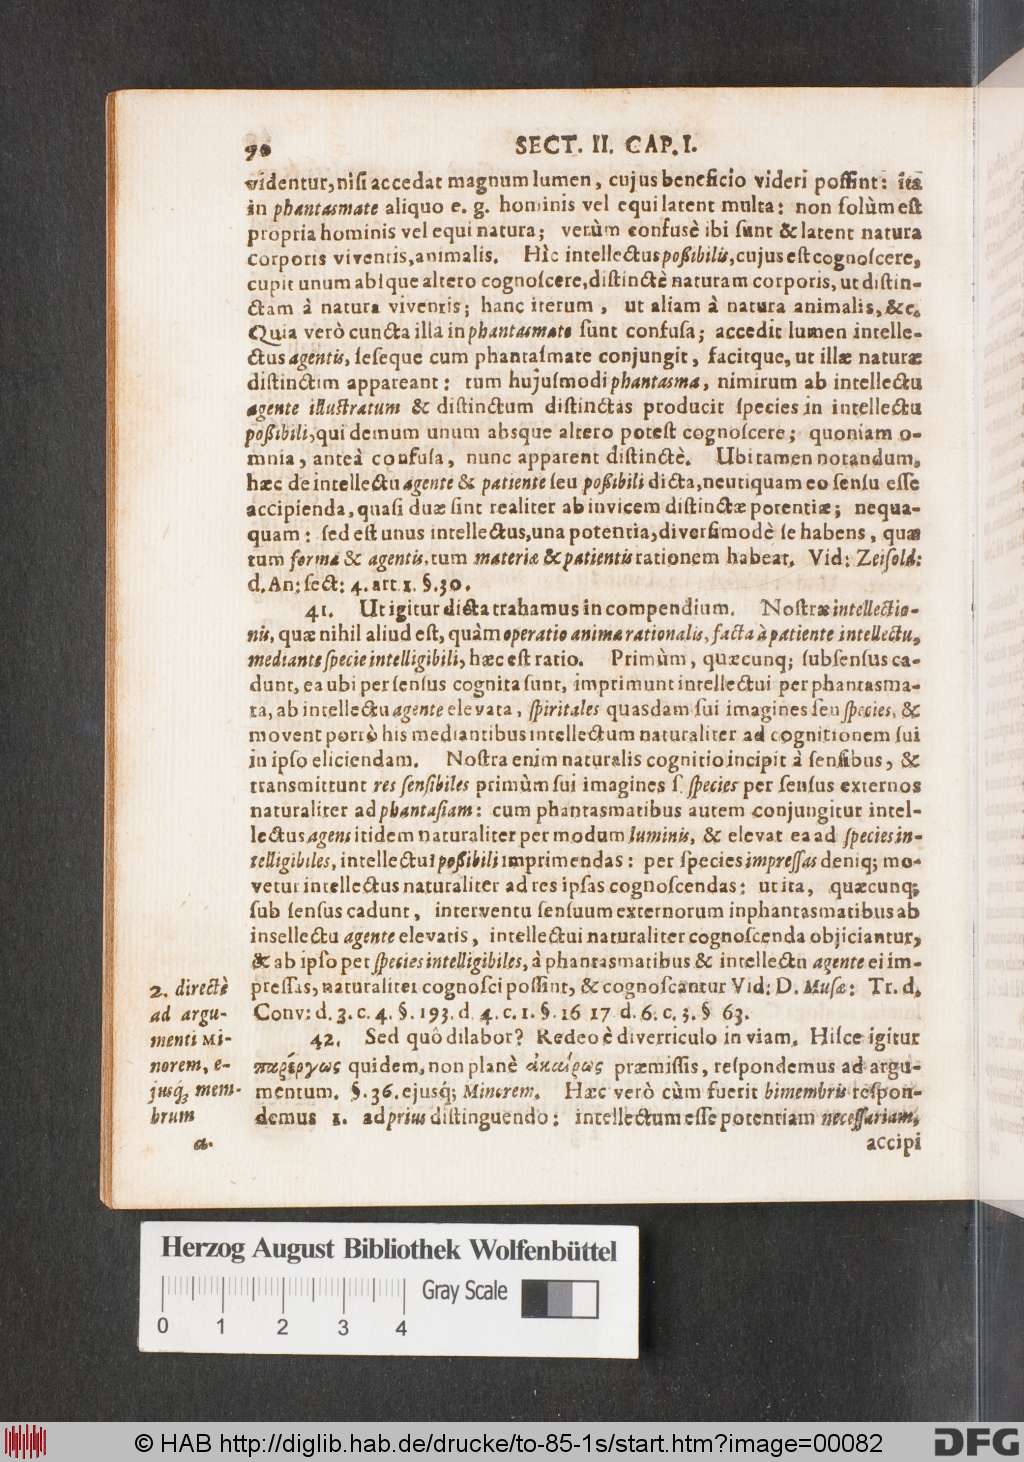 90 SECT. II. CAP. I.
videntur, nisi accedat magnum lumen, cujus beneficio videri possint: ita
in phantasmate aliquo e. g. hominis vel equi latent multa: non solùm est
propria hominis vel equi natura; verùm confusè ibi sunt & latent natura
corporis viventis, animalis. Hìc intellectus possibilis, cujus est cognoscere,
cupit unum absque altero cognoscere, distinctè naturam corporis, ut distin-
ctam à natura viventis; hanc iterum, ut aliam à natura animalis, &c.
Quia verò cuncta illa in phantasmate sunt confusa; accedit lumen intelle-
ctus agentis, seseque cum phantasmate conjungit, facitque, ut illæ naturæ
distinctim appareant: tum hujusmodi phantasma, nimirum ab intellectu
agente illustratum & distinctum distinctas producit species in intellectu
possibili, qui demum unum absque altero potest cognoscere; quoniam o-
mnia, anteà confusa, nunc apparent distinctè. Ubi tamen notandum,
hæc de intellectu agente & patiente seu possibili dicta, neutiquam eo sensu esse
accipienda, quasi duæ sint realiter ab invicem distinctæ potentiæ; nequa-
quam: sed est unus intellectus, una potentia, diversimodè se habens, quæ
tum formæ & agentis, tum materiæ & patientis rationem habeat. Vid: Zeisold:
d. An: sect: 4. art 1. §. 30.
41. Ut igitur dicta trahamus in compendium. Nostræ intellectio-
nis, quæ nihil aliud est, quàm operatio animæ rationalis, facta à patiente intellectu,
mediante specie intelligibili, hæc est ratio. Primùm, quæcunq; sub sensus ca-
dunt, ea ubi per sensus cognita sunt, imprimunt intellectui per phantasma-
ta, ab intellectu agente elevata, spiritales quasdam sui imagines seu species, &
movent porrò his mediantibus intellectum naturaliter ad cognitionem sui
in ipso eliciendam. Nostra enim naturalis cognitio incipit à sensibus, &
transmittunt res sensibiles primùm sui imagines s. species per sensus externos
naturaliter ad phantasiam: cum phantasmatibus autem conjungitur intel-
lectus agens itidem naturaliter per modum luminis, & elevat ea ad species in-
telligibiles, intellectui possibili imprimendas: per species impressas deniq; mo-
vetur intellectus naturaliter ad res ipsas cognoscendas: ut ita, quæcunq;
sub sensus cadunt, interventu sensuum externorum in phantasmatibus ab
insellectu agente elevatis, intellectui naturaliter cognoscenda objiciantur,
& ab ipso per species intelligibiles, à phantasmatibus & intellectu agente ei im-
pressas, naturaliter cognosci possint, & cognoscantur Vid: D. Musæ: Tr. d.
Conv: d. 3. c. 4. §. 193. d. 4. c. 1. §. 16 17 d. 6. c. 3. § 63.
42. Sed quô dilabor? Redeo è diverriculo in viam. Hisce igitur
παρέργως quidem, non planè ἀκαίρως præmissis, respondemus ad argu-
mentum. §. 36. ejusq́; Minorem. Hæc verò cùm fuerit bimembris respon-
demus 1. ad prius distinguendo: intellectum esse potentiam necessariam,
accipi
2. directè
ad argu-
menti Mi-
norem, e-
jusq́; mem-
brum
a.
Herzog August Bibliothek Wolfenbüttel
Gray Scale
0 1 2 3 4
© HAB http://diglib.hab.de/drucke/to-85-1s/start.htm?image=00082
DFG